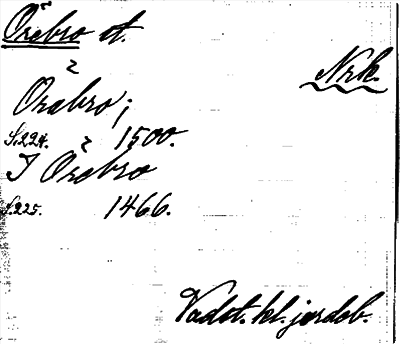 Örebro st.
Nrk.
Örebro;
S.224. 1500.
I Örebro
S.225. 1466.
Vadst. kl. jordeb.